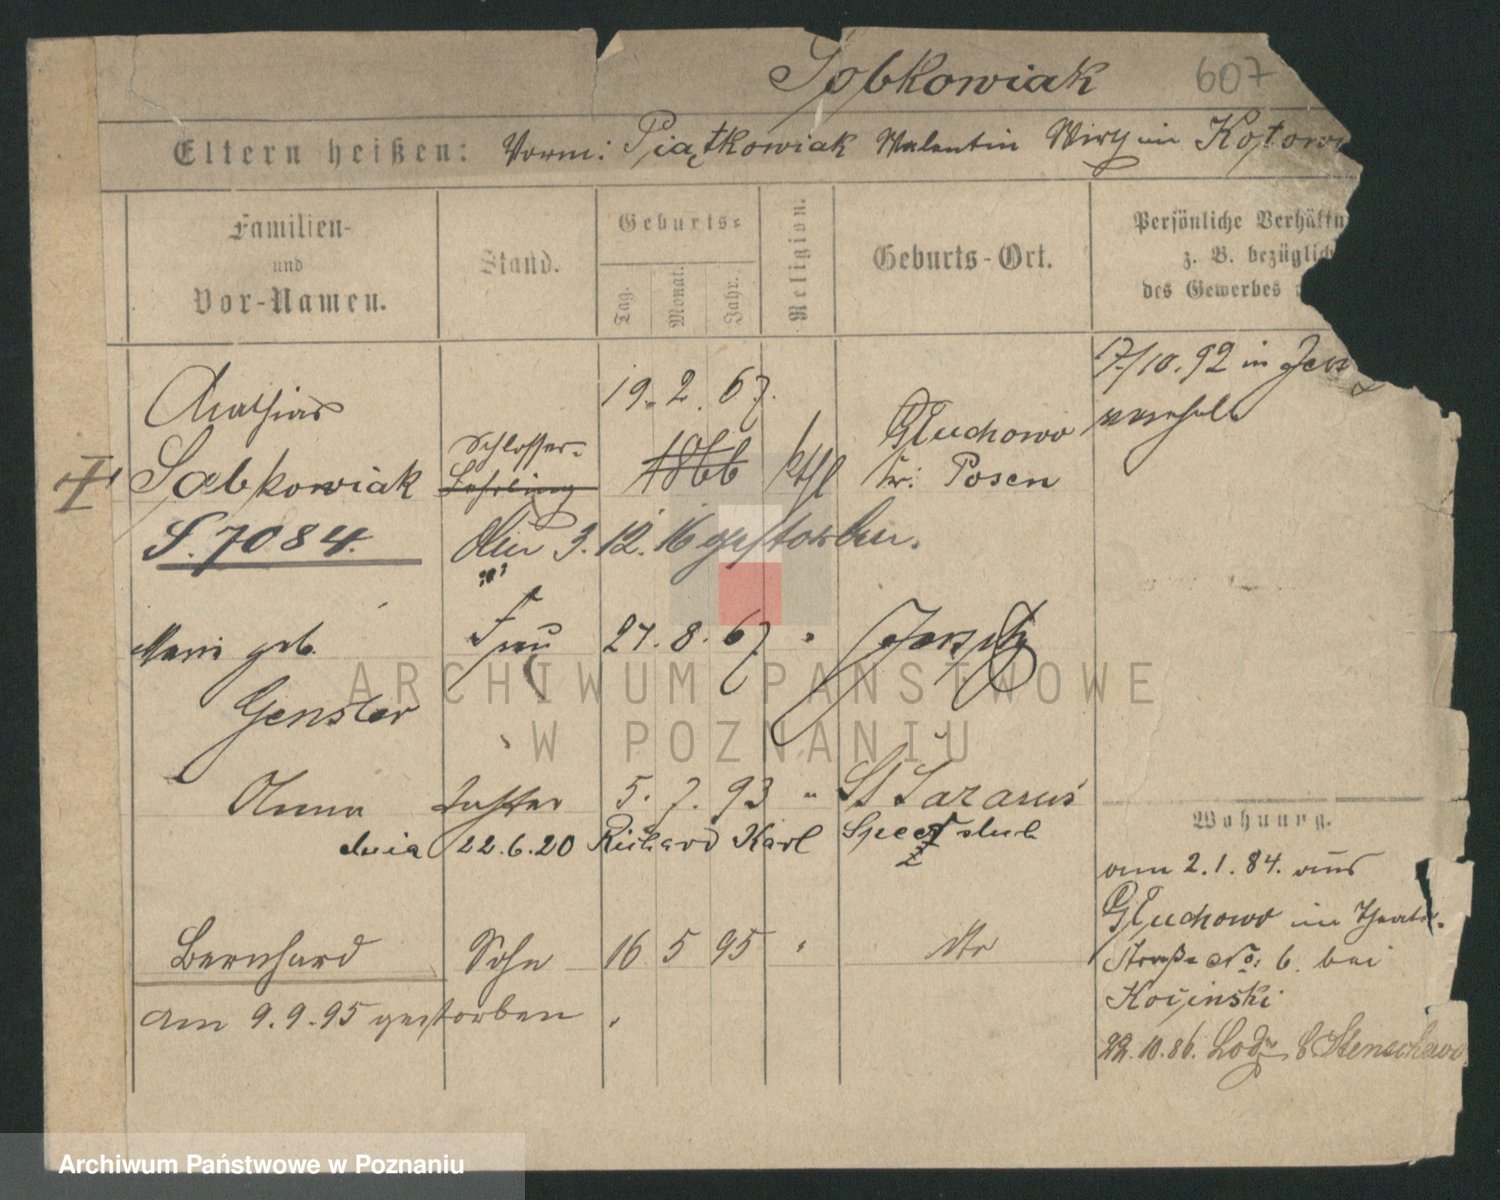 Sobkowiak 607
Eltern heißen: Vorm: Piątkowiak Valentin Wirth in Kotowo
Familien-
und
Vor-Namen.
Stand.
Geburts-
Tag. Monat. Jahr.
Religion.
Geburts-Ort.
Persönliche Verhältn
z. B. bezüglich
des Gewerbes
17/10.92 in Jers
verehel
Mathias 19. 2. 67.
Sobkowiak Schlosser- Lehrling 1866 kthl Głuchowo
Kr: Posen
S. 7084. den 3. 12. 16 gestorben.
Marie geb. Frau 27. 8. 67. " Jersitz
Gensler
Anna Tochter 5. 7. 93 " St Lazarus
22.6.20 Richard Karl
Bernhard Sohn 16 5 95 " dto
am 9.9.95 gestorben.
Wohnung.
am 2.1.84. aus
Głuchowo in Theater-
Straße No: 6. bei
22.10.86.
ARCHIWUM PAŃSTWOWE
W POZNANIU
Archiwum Państwowe w Poznaniu